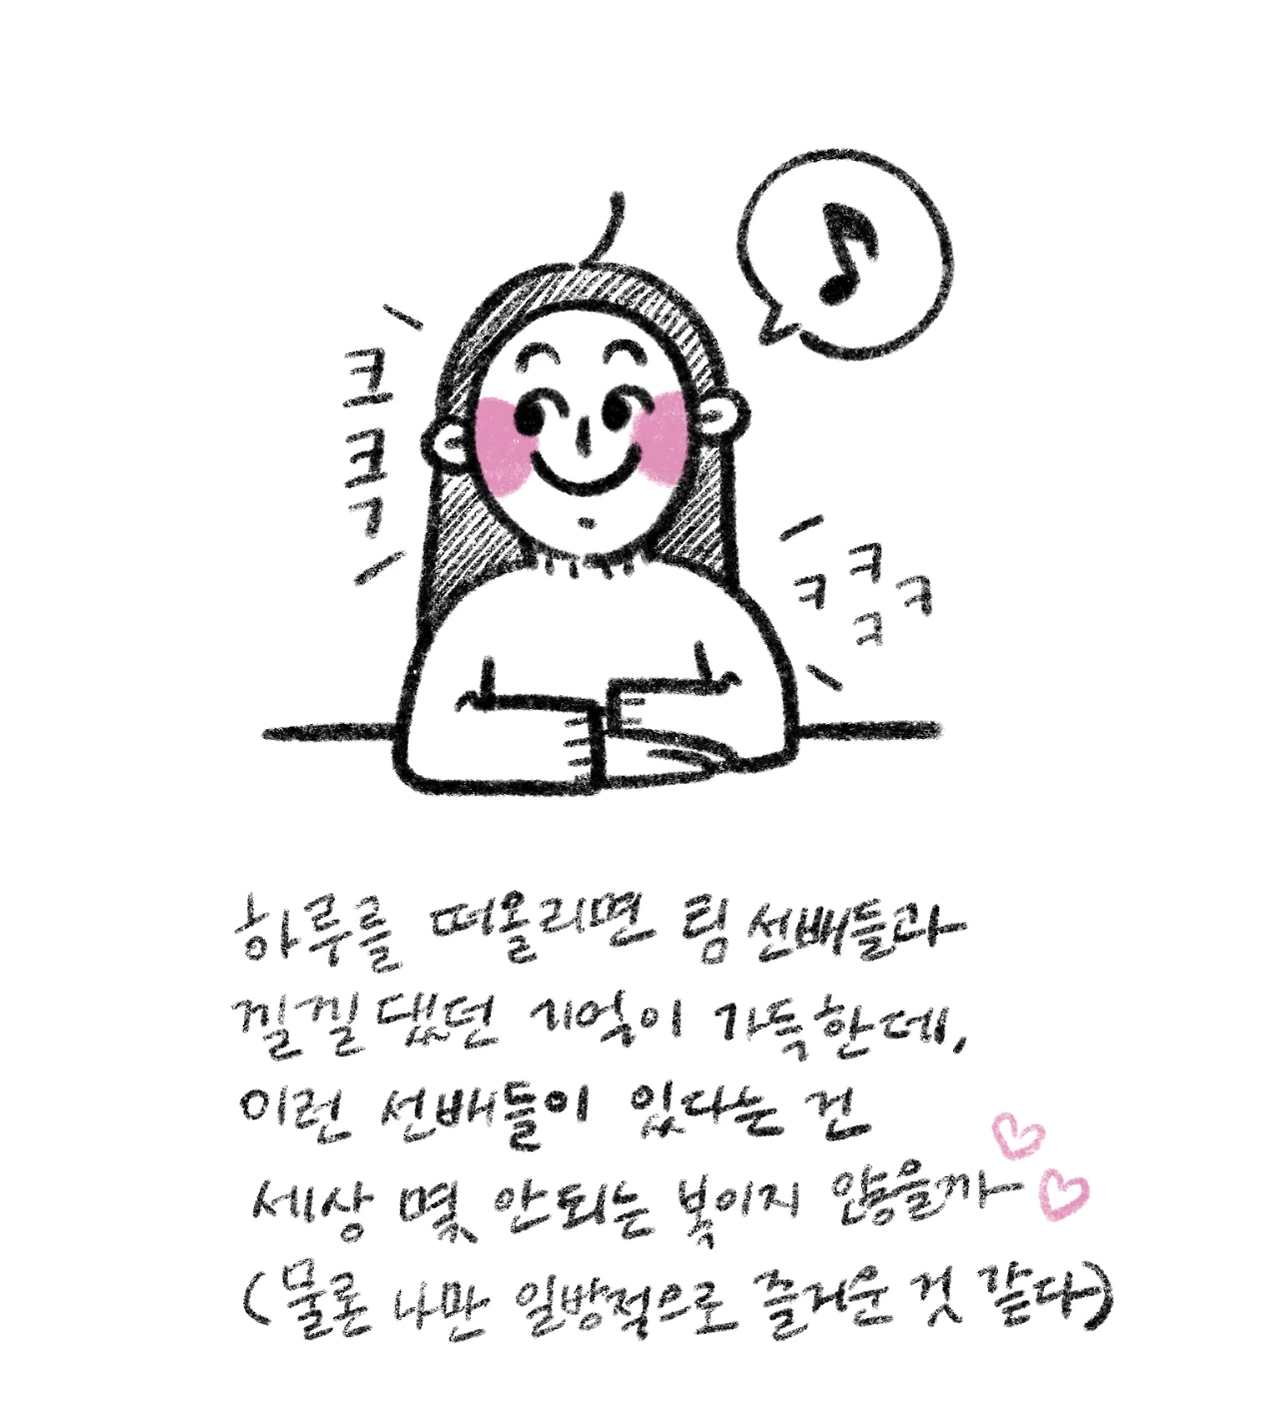 크크ㅋ
ㅋㅋㅋㅋ
하루를 떠올리면 팀 선배들과
낄낄댔던 기억이 가득한데,
이런 선배들이 있다는 건
세상 몇 안되는 복이지 않을까
(물론 나만 일방적으로 즐거운 것 같다)